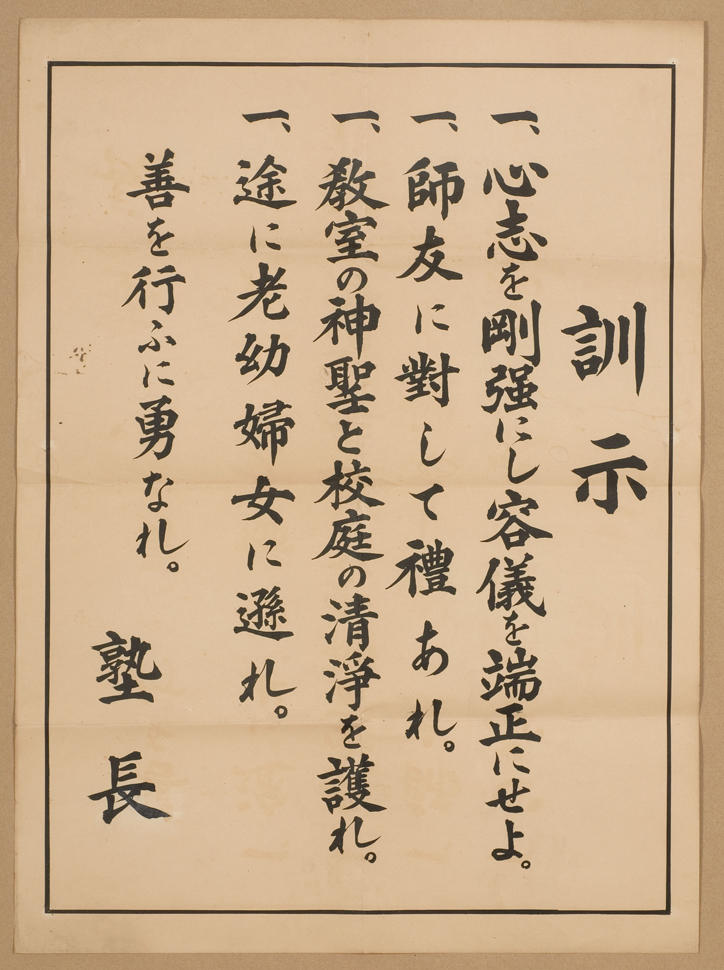 訓示
一、心志を剛强にし容儀を端正にせよ。
一、師友に對して禮あれ。
一、教室の神聖と校庭の清淨を護れ。
一、途に老幼婦女に遜れ。
善を行ふに勇なれ。
塾長